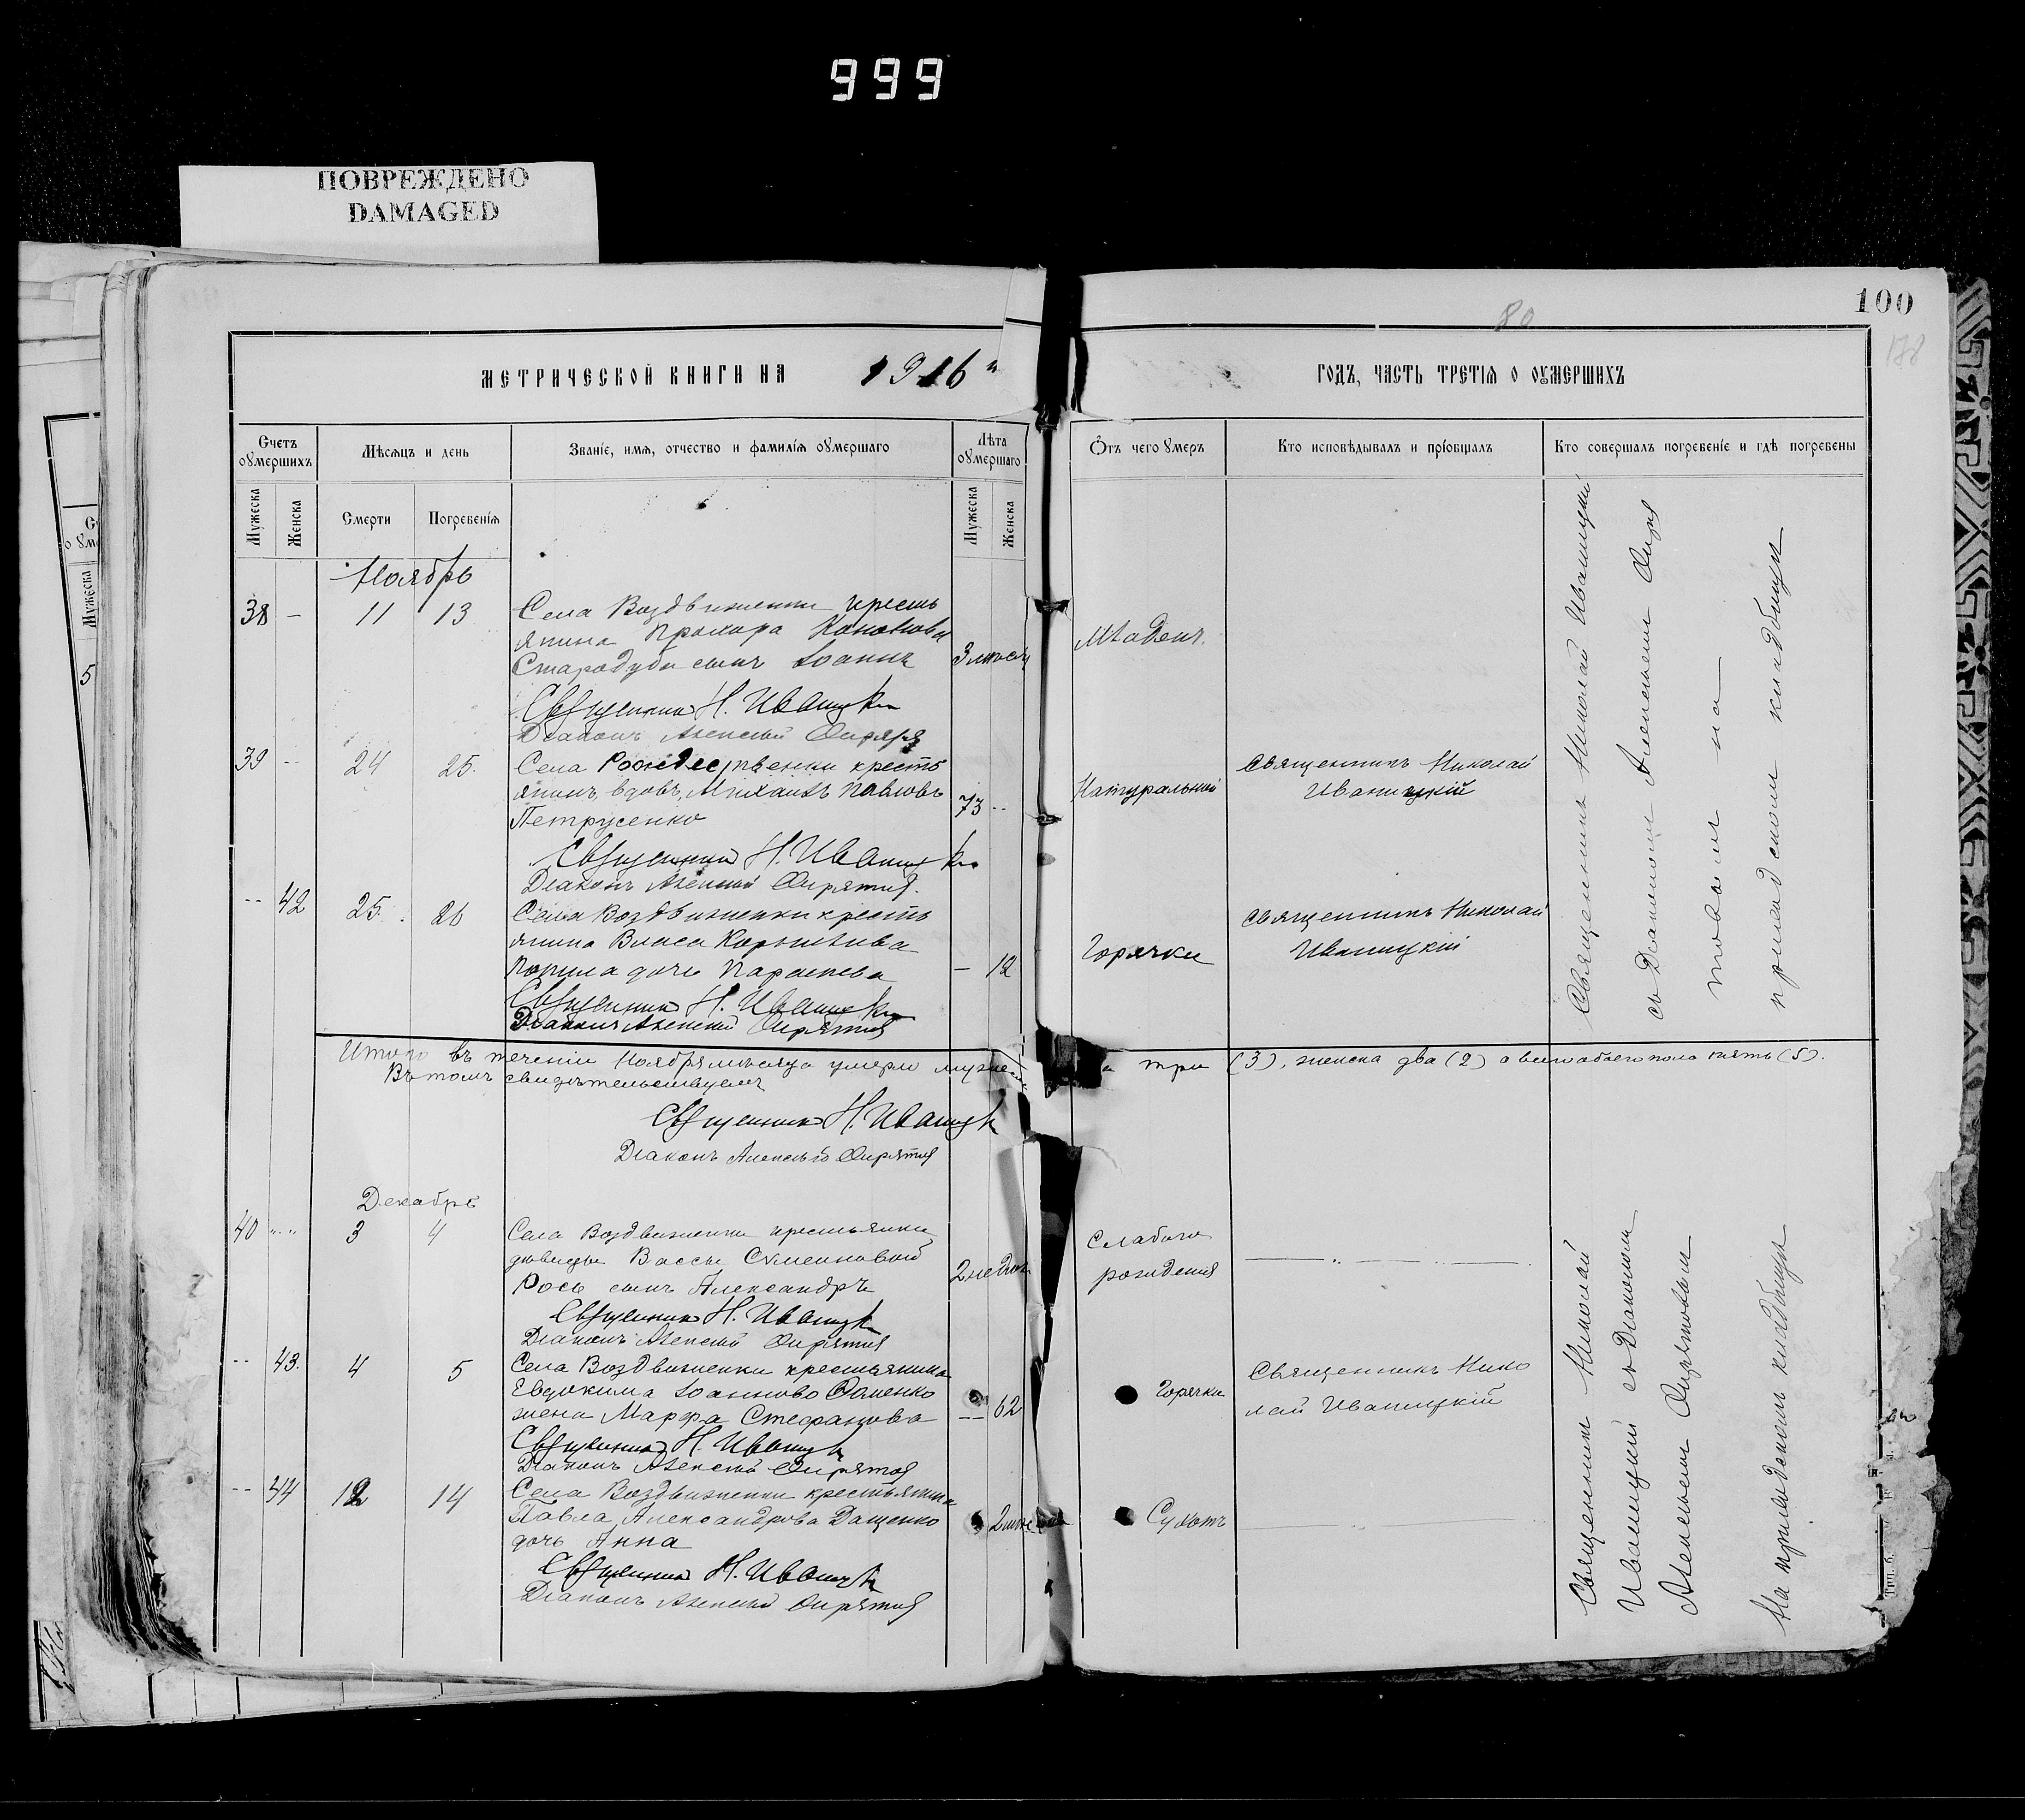 999
ПОВРЕЖДЕНО
DAMAGED
80
100
178
МЕТРИЧЕСКОЙ КНИГИ НА 1916 ГОДЪ, ЧАСТЬ ТРЕТІЯ О ОУМЕРШИХЪ
Счетъ оумершихъ
Мѣсяцъ и день
Званіе, имя, отчество и фамилія оумершаго
Лѣта оумершаго
Отъ чего оумеръ
Кто исповѣдывалъ и пріобщалъ
Кто совершалъ погребеніе и гдѣ погребены
Мужеска
Женска
Смерти
Погребенія
Мужеска
Женска
Ноябрь
38 — 11 13 Села Воздвиженки кресть
янина Прохора Кононова
Стародуба сынъ Іоаннъ 3 мѣсяц Младенч.
Священникъ Н. Иваницкій
Діаконъ Алексѣй Опрятъ
39 -- 24 25. Села Рождественки кресть
янинъ, вдовъ, Михаилъ Павловъ
Петрусенко 73 -- Натуральной Священникъ Николай
Иваницкій
Священникъ Н. Иваницкій
Діаконъ Алексѣй Опрятный
-- 42 25. 26 Села Воздвиженки кресть
янина Власа
дочь Параскева — 12 Горячки Священникъ Николай
Иваницкій
Священникъ Н. Иваницкій
Діаконъ Алексѣй Опрятный
Священникъ Николай Иваницкій
съ Діакономъ Алексѣемъ Опря
товымъ на
приходскомъ кладбищѣ
Итого въ теченіи Ноября мѣсяца умерло мужеска три (3), женска два (2) а всего обоего пола пять (5).
Въ томъ свидѣтельствуемъ
Священникъ Н. Иваницк
Діаконъ Алексѣй Опрятный
Декабрь
40 3 4 Села Воздвиженки крестьянки
дѣвицы Вассы Сумеоновой
Рось сынъ Александръ 2 недѣли Слабаго
рожденія
Священникъ Н. Иваницк
Діаконъ Алексѣй Опрятный
-- 43. 4 5 Села Воздвиженки крестьянина
Евдокима Іоаннова
жена Марфа Стефанова -- 62 Горячки Священникъ Нико
лай Иваницкій
Священникъ Н. Иваницк
Діаконъ Алексѣй Опрятный
-- 44 12 14 Села Воздвиженки крестьянина
Павла Александрова Дащенко
дочь Анна 2 Сухотъ
Священникъ Н. Иваницк
Діаконъ Алексѣй Опрятный
Священникъ Николай
Иваницкій съ Діакономъ
Алексѣемъ Опрятовымъ
На приходскомъ кладбищѣ